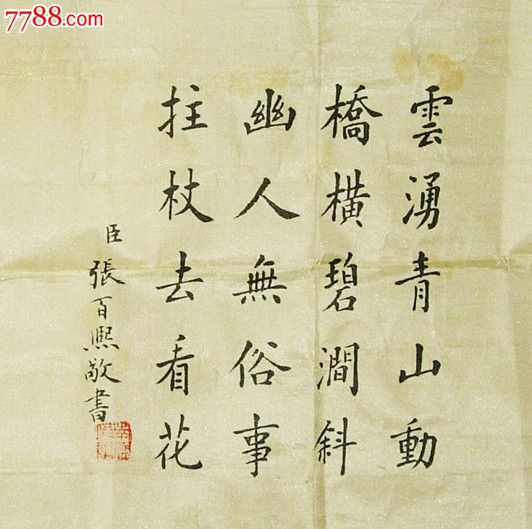 7788.com
雲湧青山動
橋橫碧澗斜
幽人無俗事
拄杖去看花
臣張百熙敬書